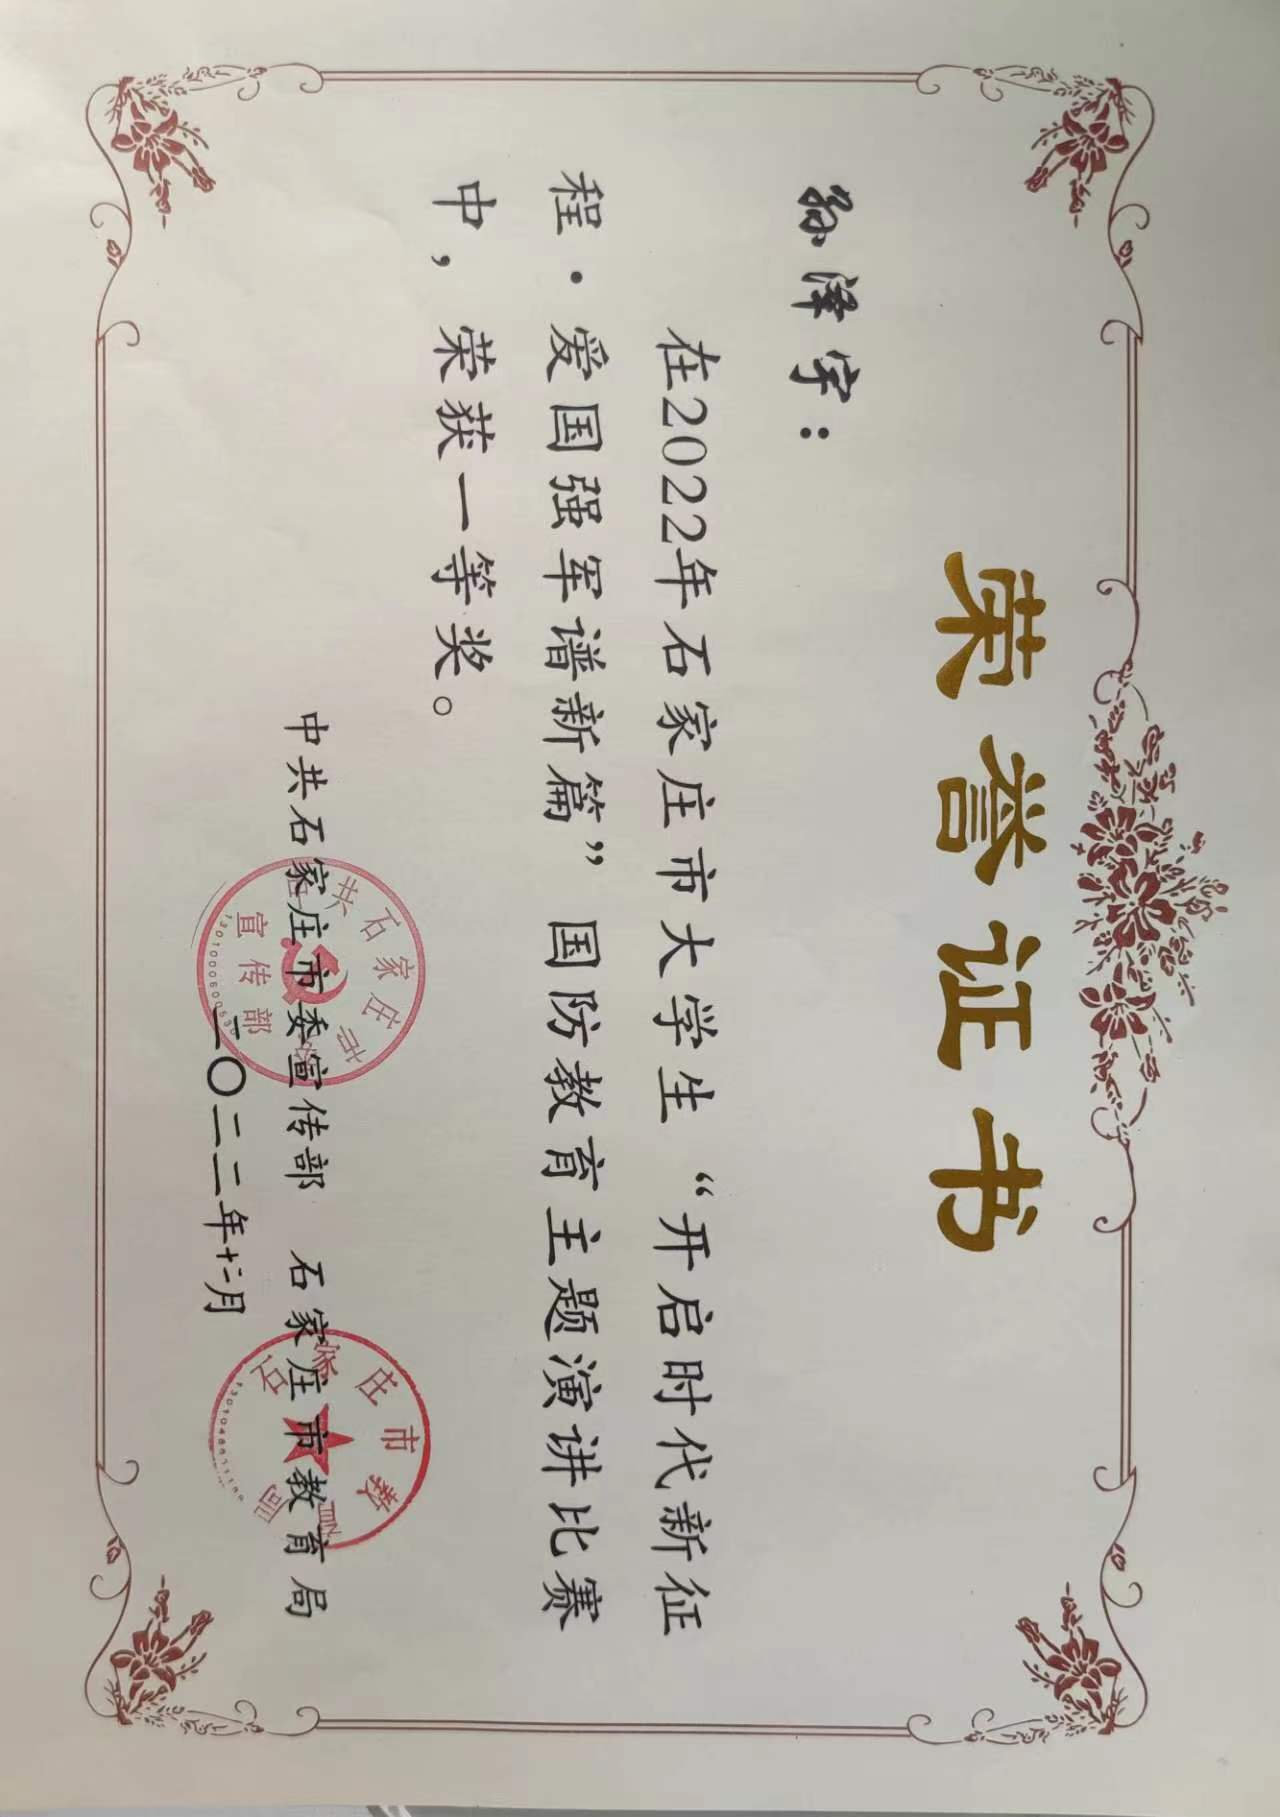 荣誉证书
孙泽宇：
在2022年石家庄市大学生“开启时代新征
程·爱国强军谱新篇”国防教育主题演讲比赛
中，荣获一等奖。
中共石家庄市委宣传部 石家庄市教育局
二〇二二年十二月
共石家庄市
宣传部
石家庄市教